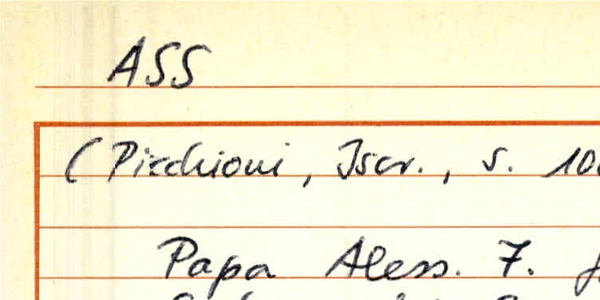 ASS
(Picchioni, Iscr., s. 10
Papa Aless. 7.